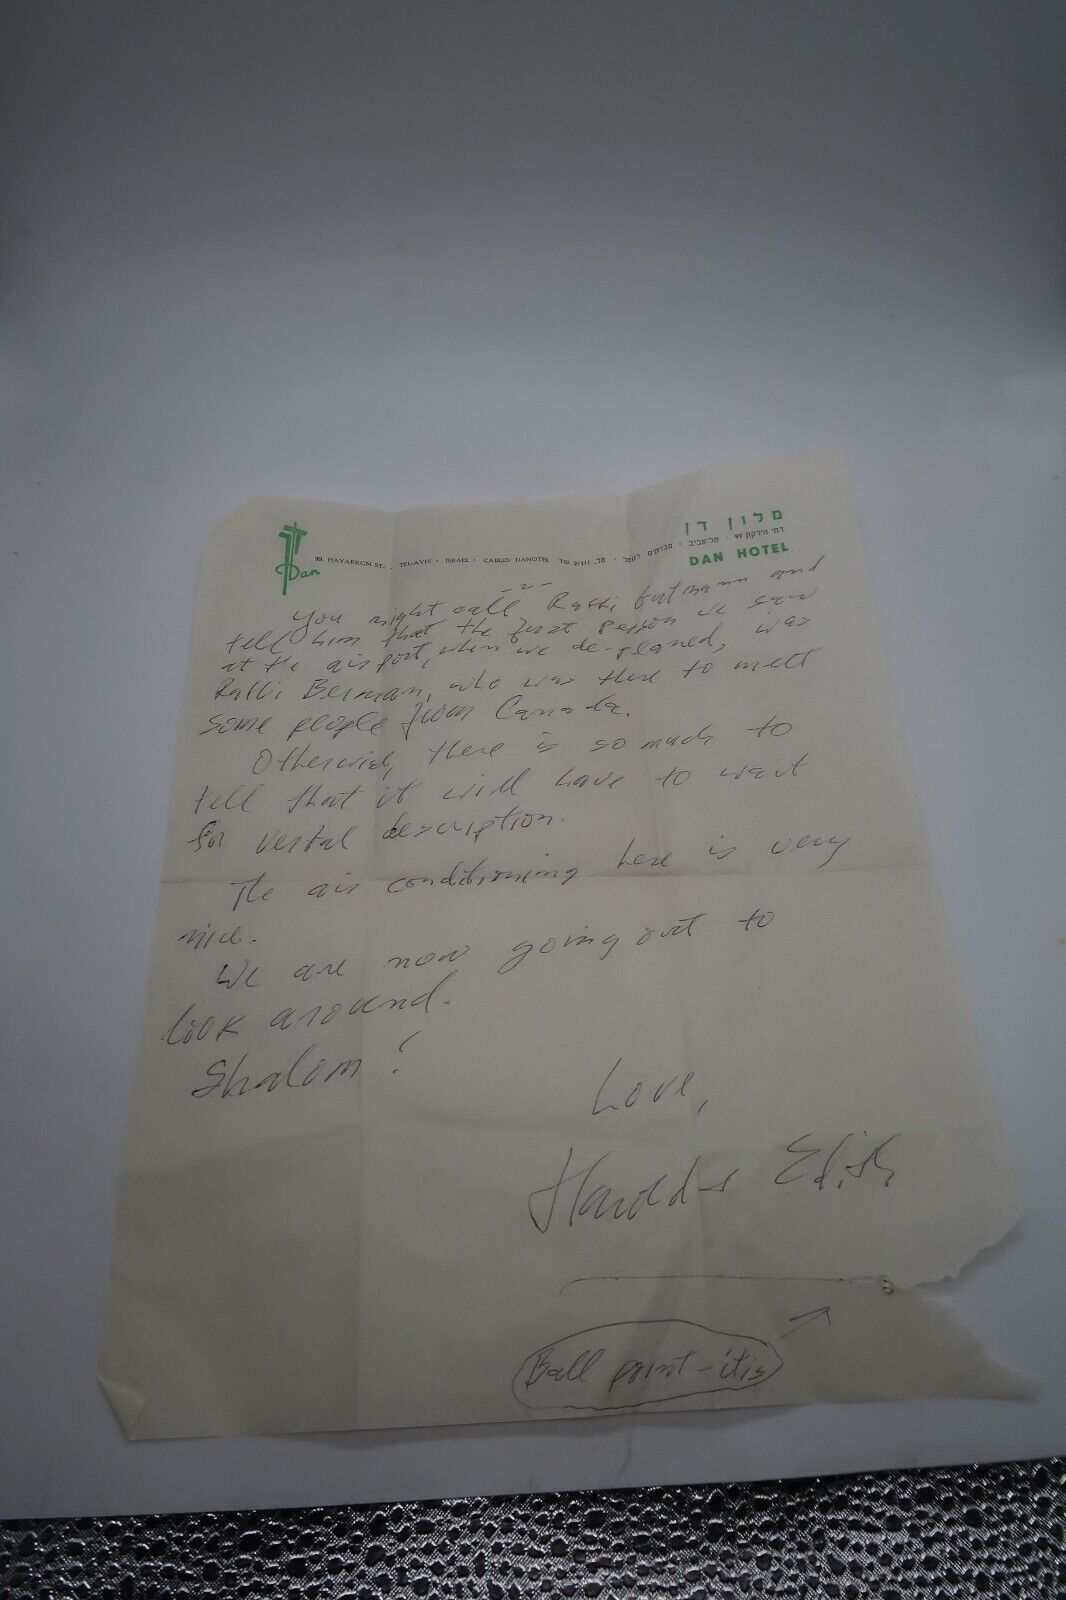 Dan
99, HAYARKON ST. . TEL-AVIV · ISRAEL · CABLES: DANOTEL TEL.
מלון דן
רח׳ הירקון 99 · תל־אביב · מברקים
DAN HOTEL
-2-
You might call Rabbi Gutmann and
tell him that the first person we saw
at the airport, when we de-planed, was
Rabbi Berman, who was there to meet
some people from Canada.
Otherwise, there is so much to
tell that it will have to wait
for verbal description.
The air conditioning here is very
nice.
We are now going out to
look around.
Shalom!
Love,
Harold + Edith
Ball point-itis